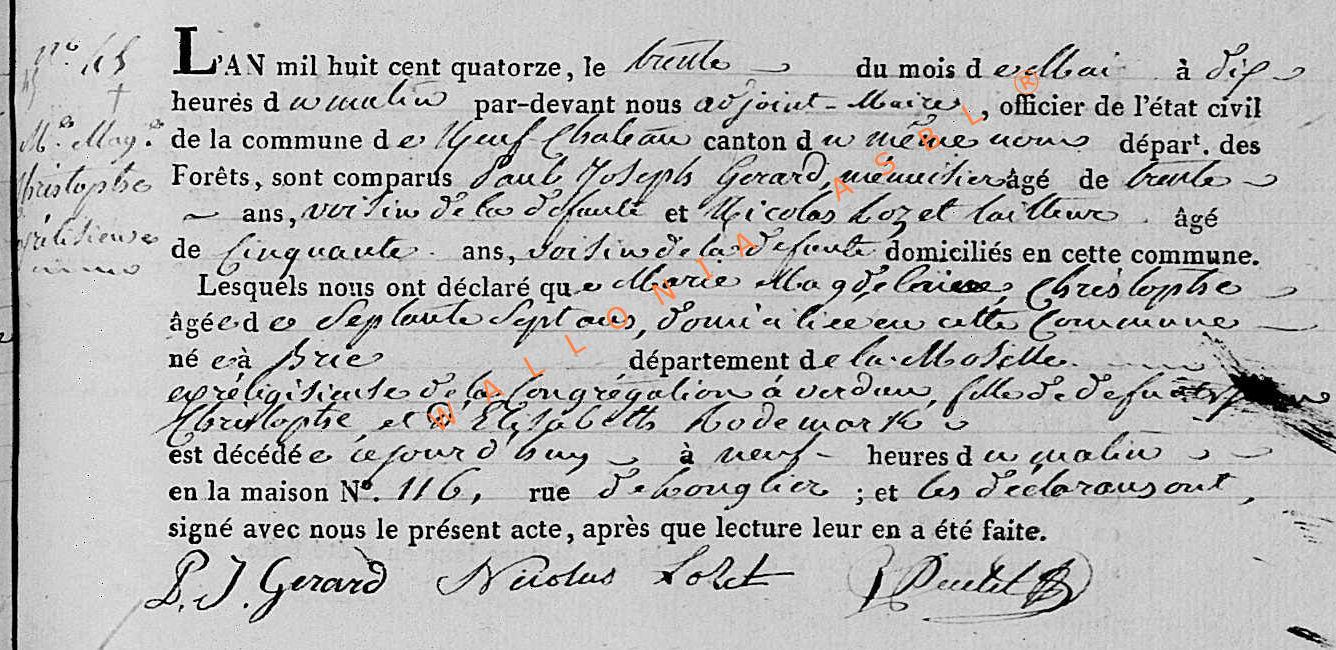 nº 45
L'AN mil huit cent quatorze, le trente du mois de Mai à dix
heures du matin par-devant nous adjoint-Maire, officier de l'état civil
Mie Magne de la commune de Neufchateau canton du même nom départ. des
Christophe Forêts, sont comparus Paul Joseph Gerard, ménuisier âgé de trente
ans, voisin de la défunte et Nicolas Lozet tailleur âgé
de Cinquante ans, voisin de la défunte domiciliés en cette commune.
Lesquels nous ont déclaré que Marie Magdeleine Christophe
âgée de Septante Sept ans, domiciliée en cette Commune
née à Brie département de la Moselle
exréligisieuse de la Congrégation à verdun, fille de defunts
Christophe et d'Elisabeth Rodemark
est décédée ce jourd'huy à neuf heures du matin
en la maison Nº. 116, rue de Longlier ; et les déclarans ont,
signé avec nous le présent acte, après que lecture leur en a été faite.
P. J. Gerard Nicolas Lozet
WALLONIA ASBL ®